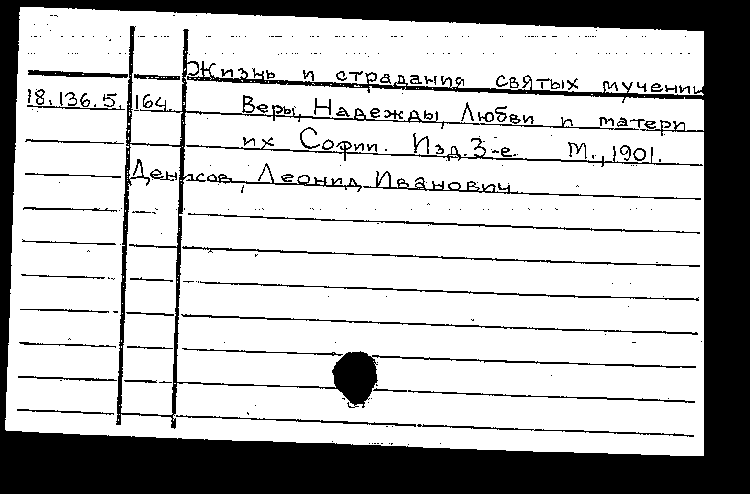 Жизнь и страдания святых мучениц
18.136.5. 164. Веры, Надежды, Любви и матери
их Софии. Изд. 3-е. М., 1901.
Денисов, Леонид Иванович